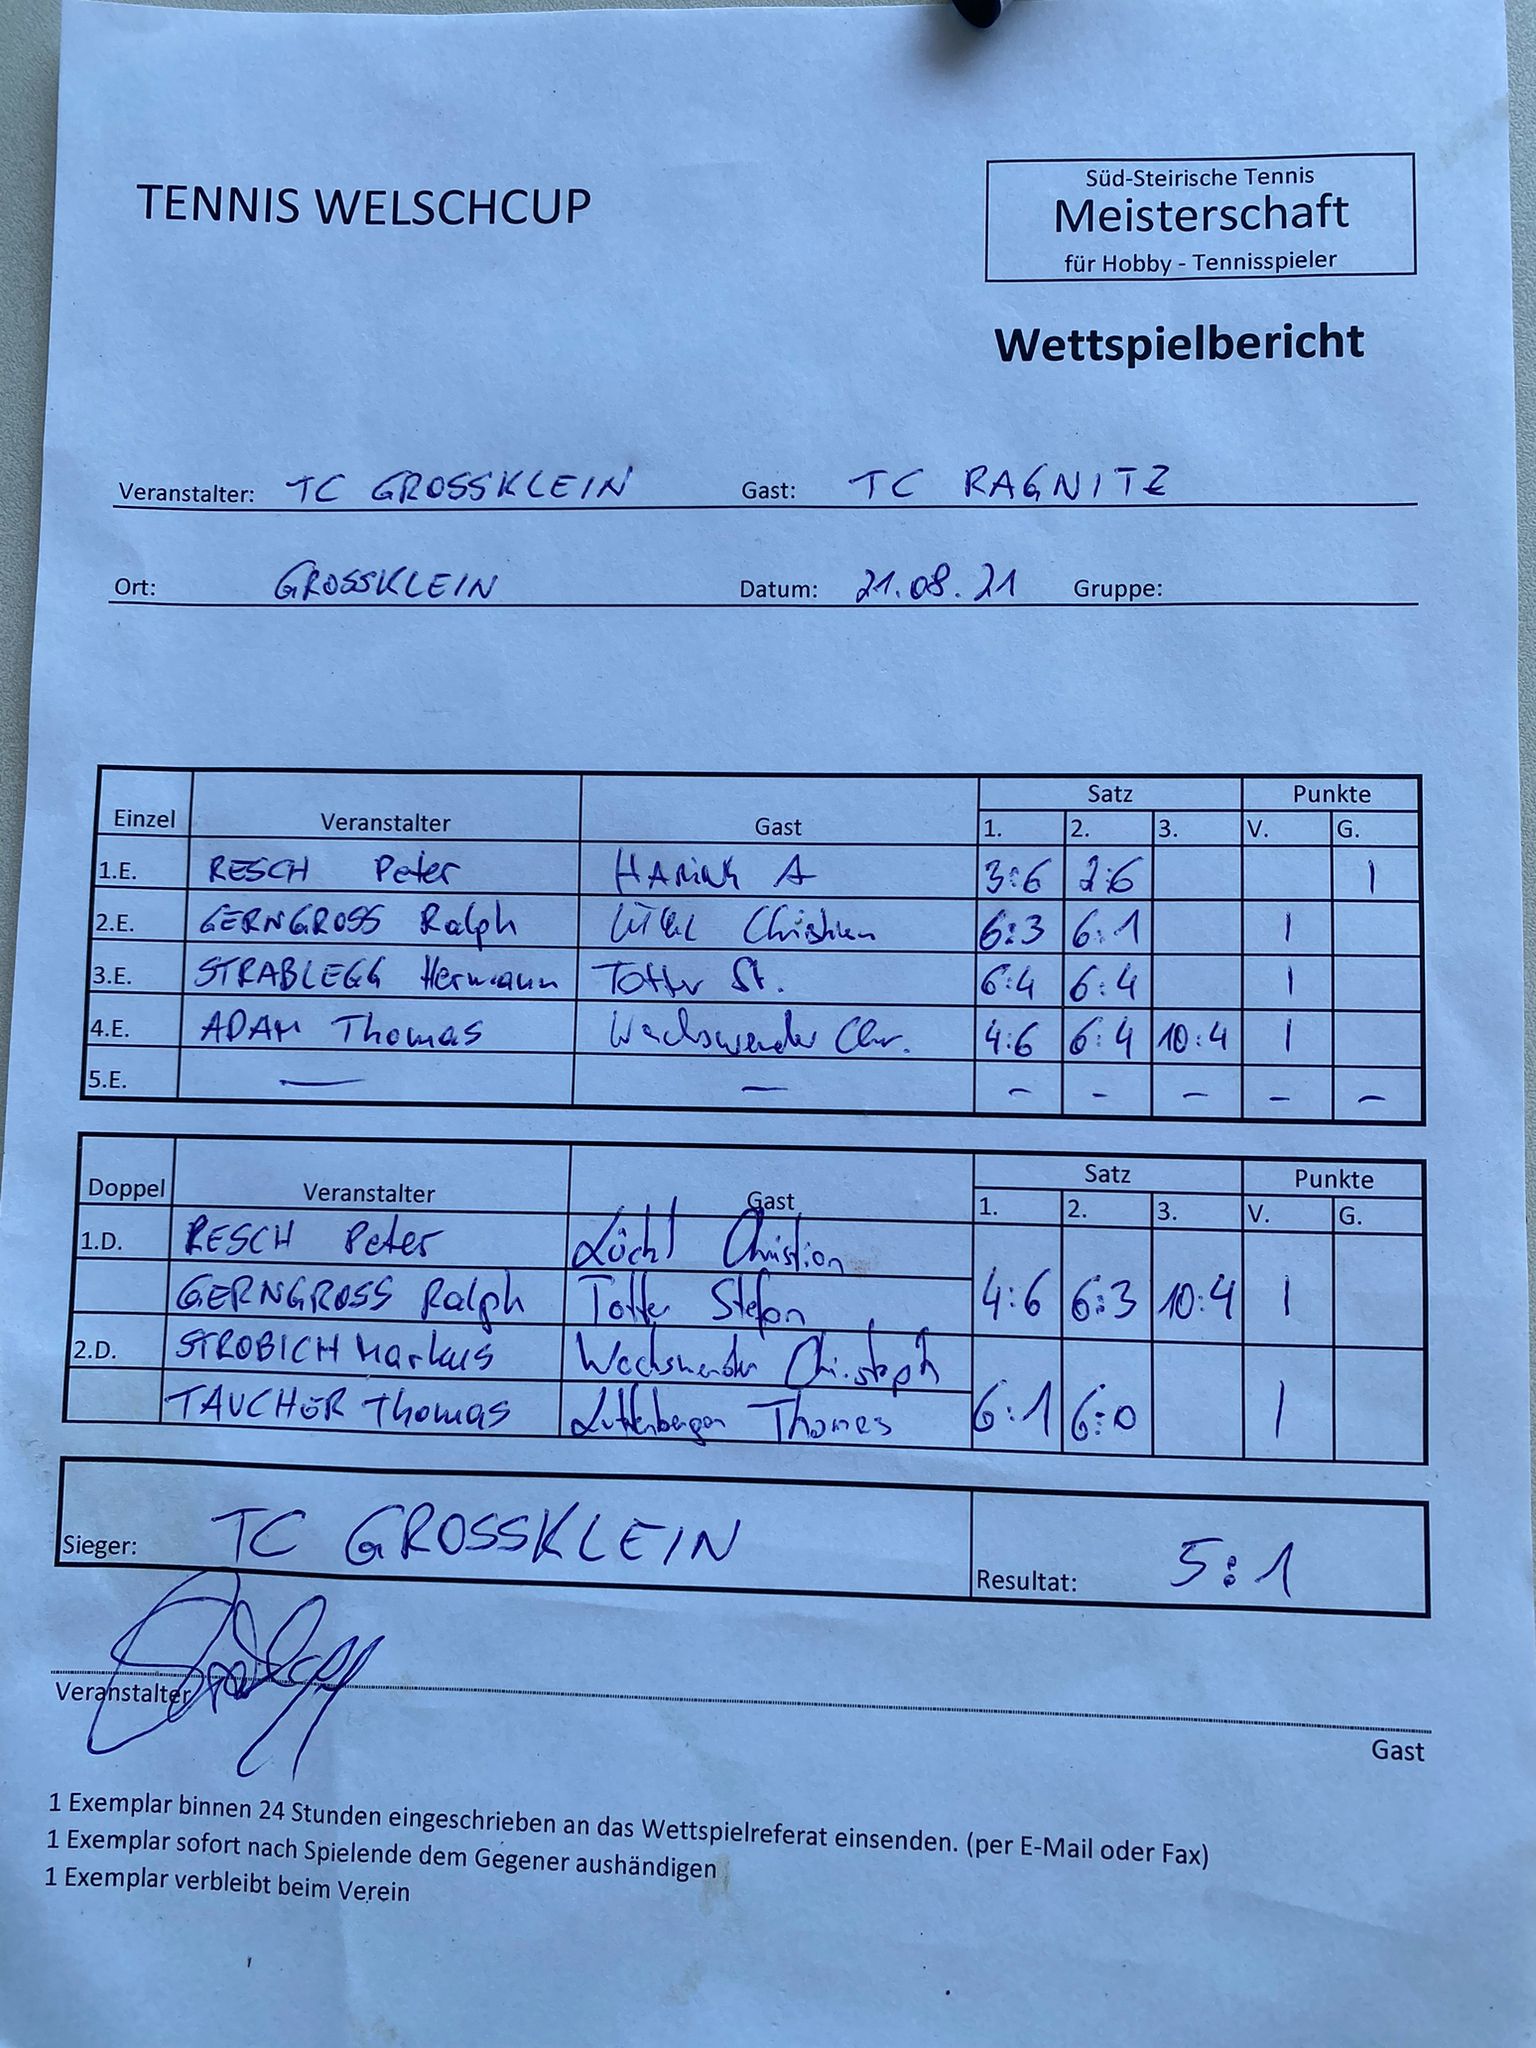 TENNIS WELSCHCUP
Süd-Steirische Tennis
Meisterschaft
für Hobby - Tennisspieler
Wettspielbericht
Veranstalter: TC GROSSKLEIN Gast: TC RAGNITZ
Ort: GROSSKLEIN Datum: 21.08.21 Gruppe:
Satz Punkte
Einzel Veranstalter Gast 1. 2. 3. V. G.
1.E. RESCH Peter A 3:6 2:6 1
2.E. GERNGROSS Ralph Christian 6:3 6:1 1
3.E. STRABLEGG Hermann Totter St. 6:4 6:4 1
4.E. ADAM Thomas Wachswender Chr. 4:6 6:4 10:4 1
5.E. — — - - - - -
Satz Punkte
Doppel Veranstalter Gast 1. 2. 3. V. G.
1.D. RESCH Peter Christian
GERNGROSS Ralph Totter Stefan 4:6 6:3 10:4 1
2.D. STROBICH Markus Wachswender Christoph
TAUCHER Thomas Thomas 6:1 6:0 1
Sieger: TC GROSSKLEIN Resultat: 5:1
Veranstalter
Gast
1 Exemplar binnen 24 Stunden eingeschrieben an das Wettspielreferat einsenden. (per E-Mail oder Fax)
1 Exemplar sofort nach Spielende dem Gegener aushändigen
1 Exemplar verbleibt beim Verein